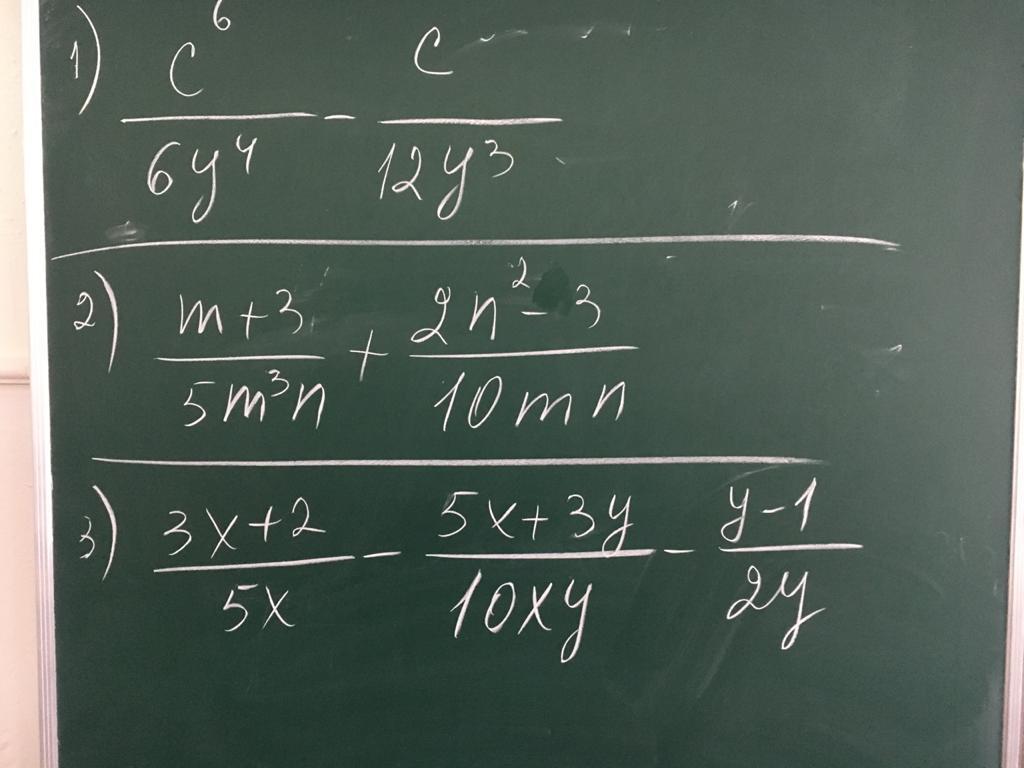 1) c⁶/6y⁴ - c/12y³
2) m+3/5m³n + 2n²-3/10mn
3) 3x+2/5x - 5x+3y/10xy - y-1/2y